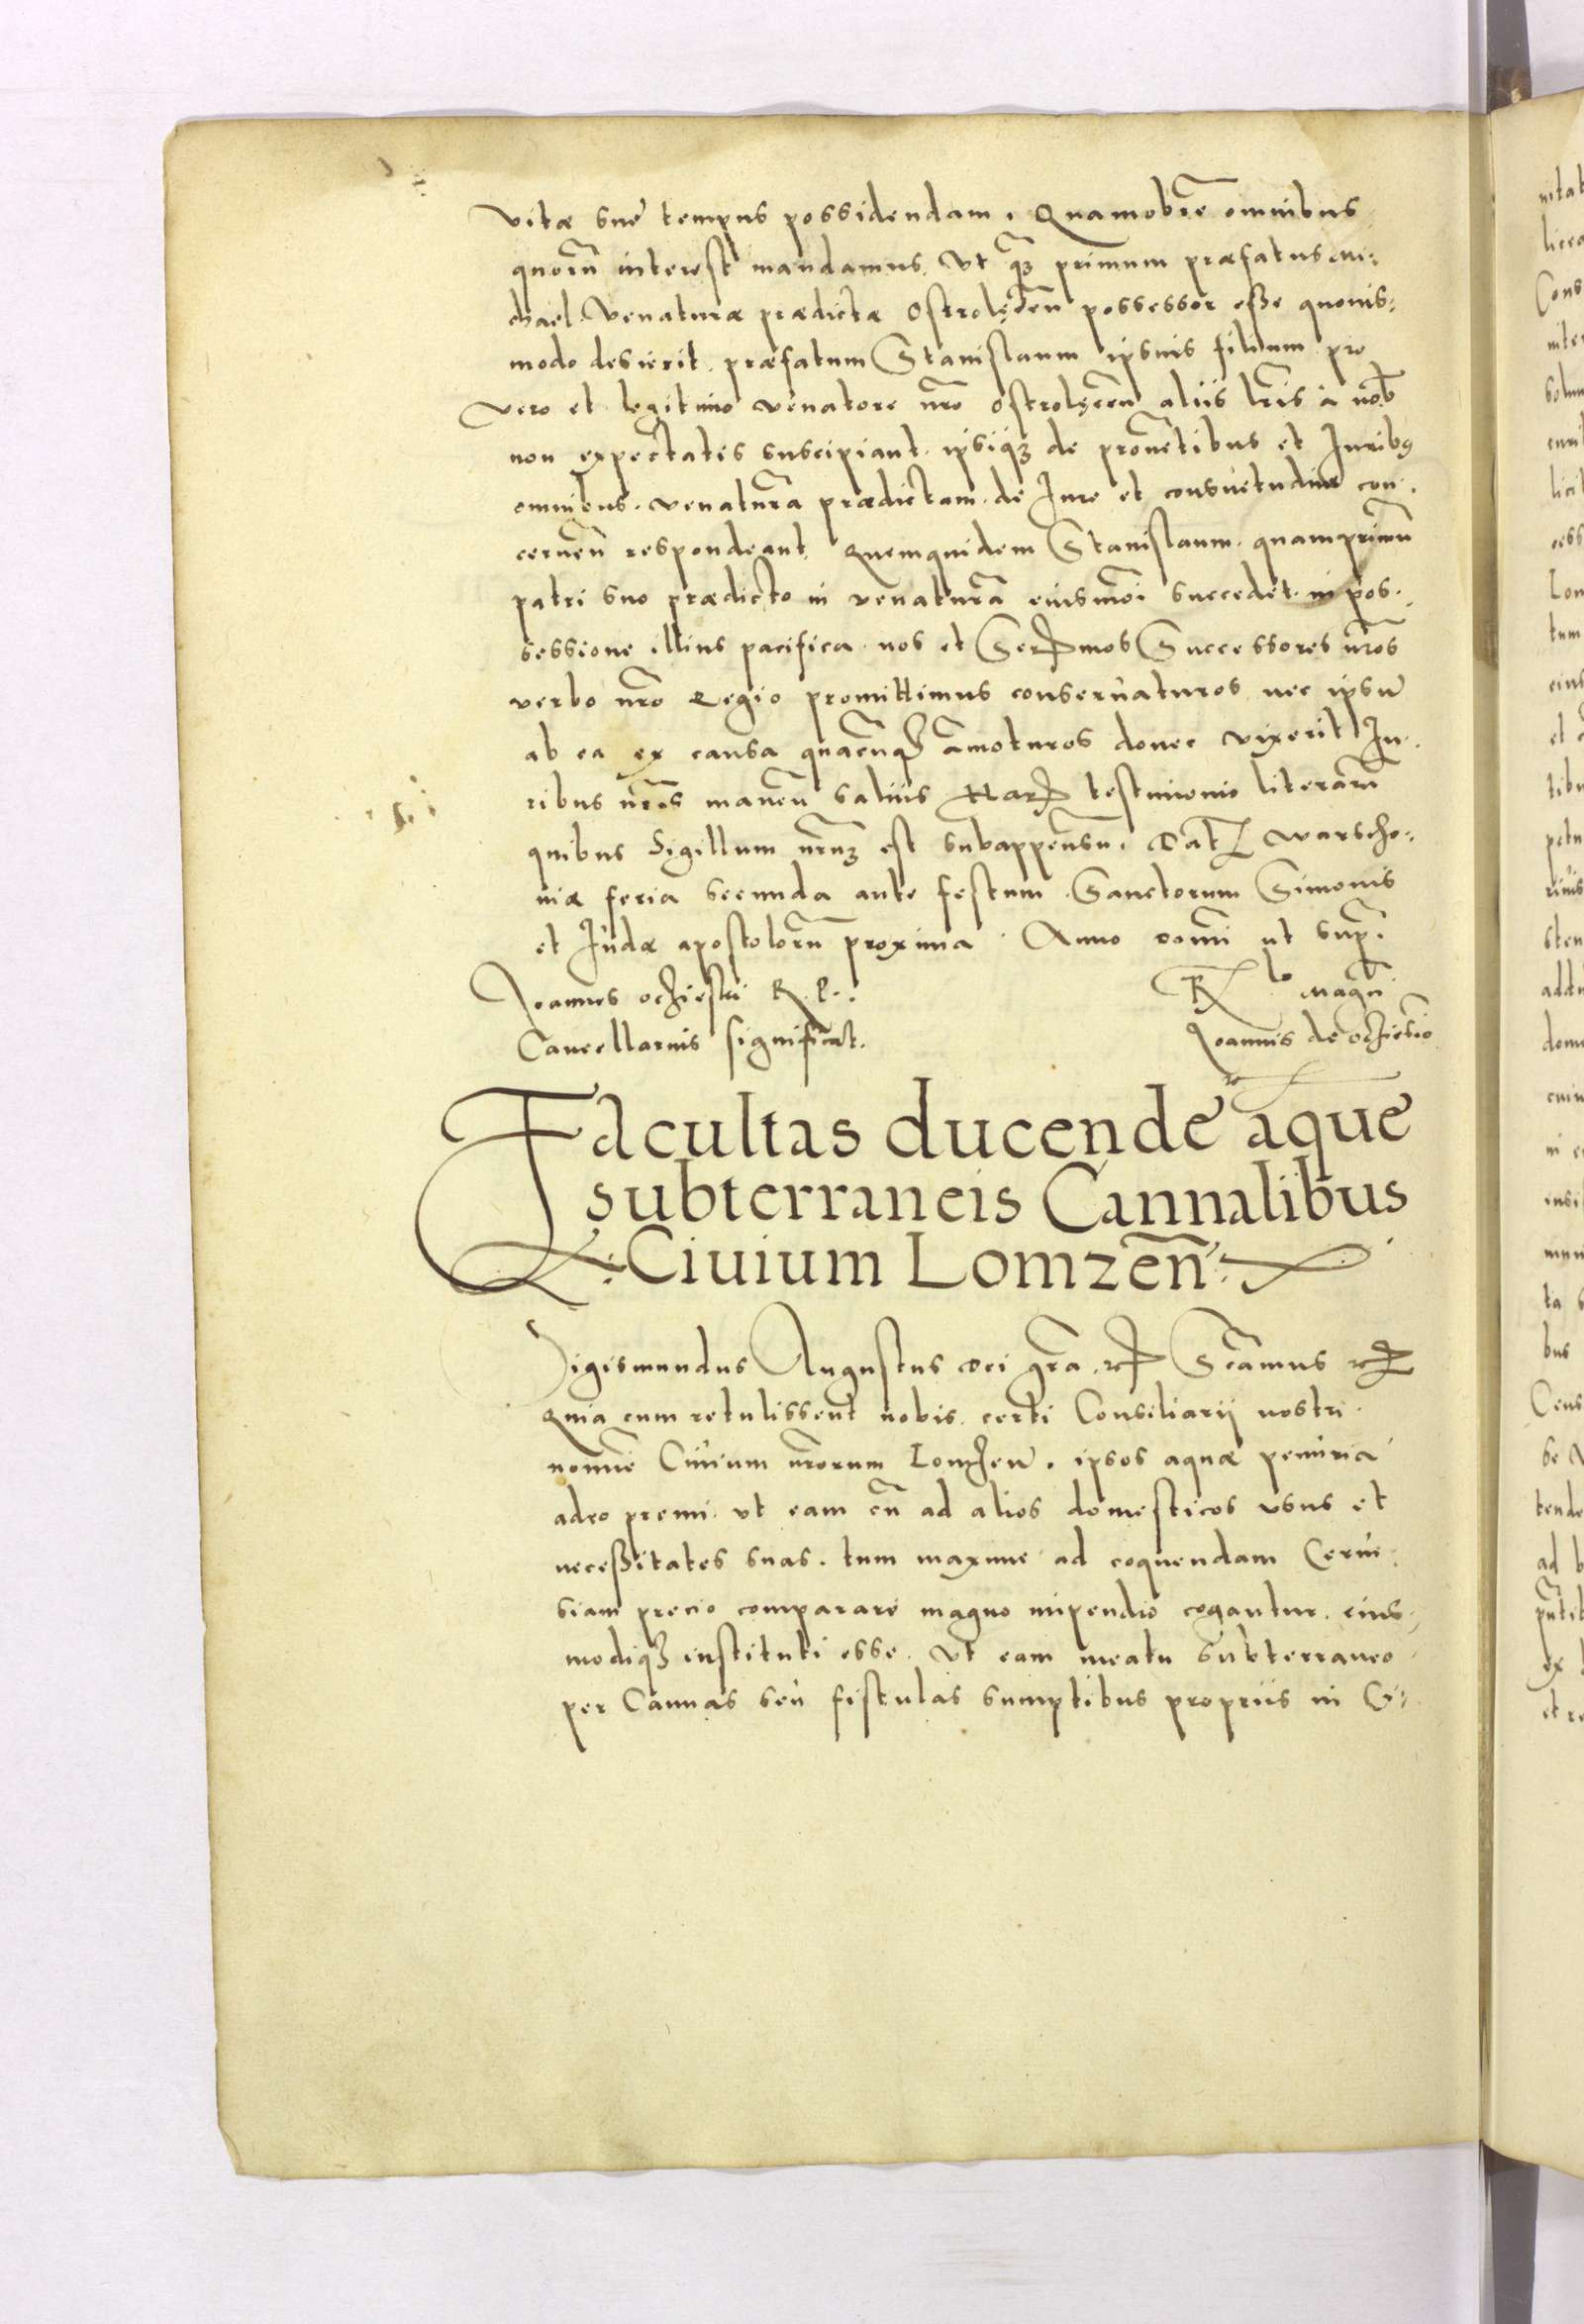 vitæ suæ tempus possidendam. Quamobrē omnibus
quorū interest mandamus. Vt q̄ꝫ primum præfatus Mi:
chael. Venaturæ prædictæ Ostrolęcēn possessor esße quouis:
modo desierit. præfatum Stanislaum ipsius filium pro
vero et legitimo venatore nr̄o Ostrolęcēn aliis lr̄is à nob̄
non expectatis suscipiant. ipsiq̢ꝫ de prouētibus et Iuribꝰ
omnibus. venaturā prædictam. de Iure et consuetudine con.
cernēn respondeant. Quemquidem Stanislaum. quamprimū
patri suo prædicto in venaturā eiusmōi succedet. in pos.
sessione illius pacifica. nos et Ser̄mos Successores nr̄os
verbo nr̄o Regio promittimus conseruaturos nec ipsū
ab ea ex causa quacūqꝫ āmoturos donec vixerit Iu.
ribus nr̄is manēn saluis Har̄ testimonio literarū
quibus Sigillum nr̄umꝫ est subappensū. Dat̄ Warscho:
uiæ feria secunda ante festum Sanctorum Simonis
et Iudæ apostolorū proxima. Anno Domī ut sup̄.
Joannes Oczieski R. P..
R̄ lo Magn̄
Cancellarius significat.
Joannis de Oczieskio
Facultas ducende aque
subterraneis Cannalibus
Ciuium Lomzēn
Sigismundus Augustus Dei gr̄a. rc̄ S̄camus rc̄
Quia cum retulissent nobis. certi Consiliarij nostri
nomīe Ciuium nr̄orum Lomzen̄. ipsos aquæ penuria
adeo premi. vt eam cū ad alios domesticos vsus et
necesßitates suas. tum maxime ad coquendam Cerui.
siam precio comparare magno impendio cogantur. eius.
modiqꝫ instituti esse. Vt eam meatu subterraneo
per Cannas seu fistulas sumptibus propriis in Ci: